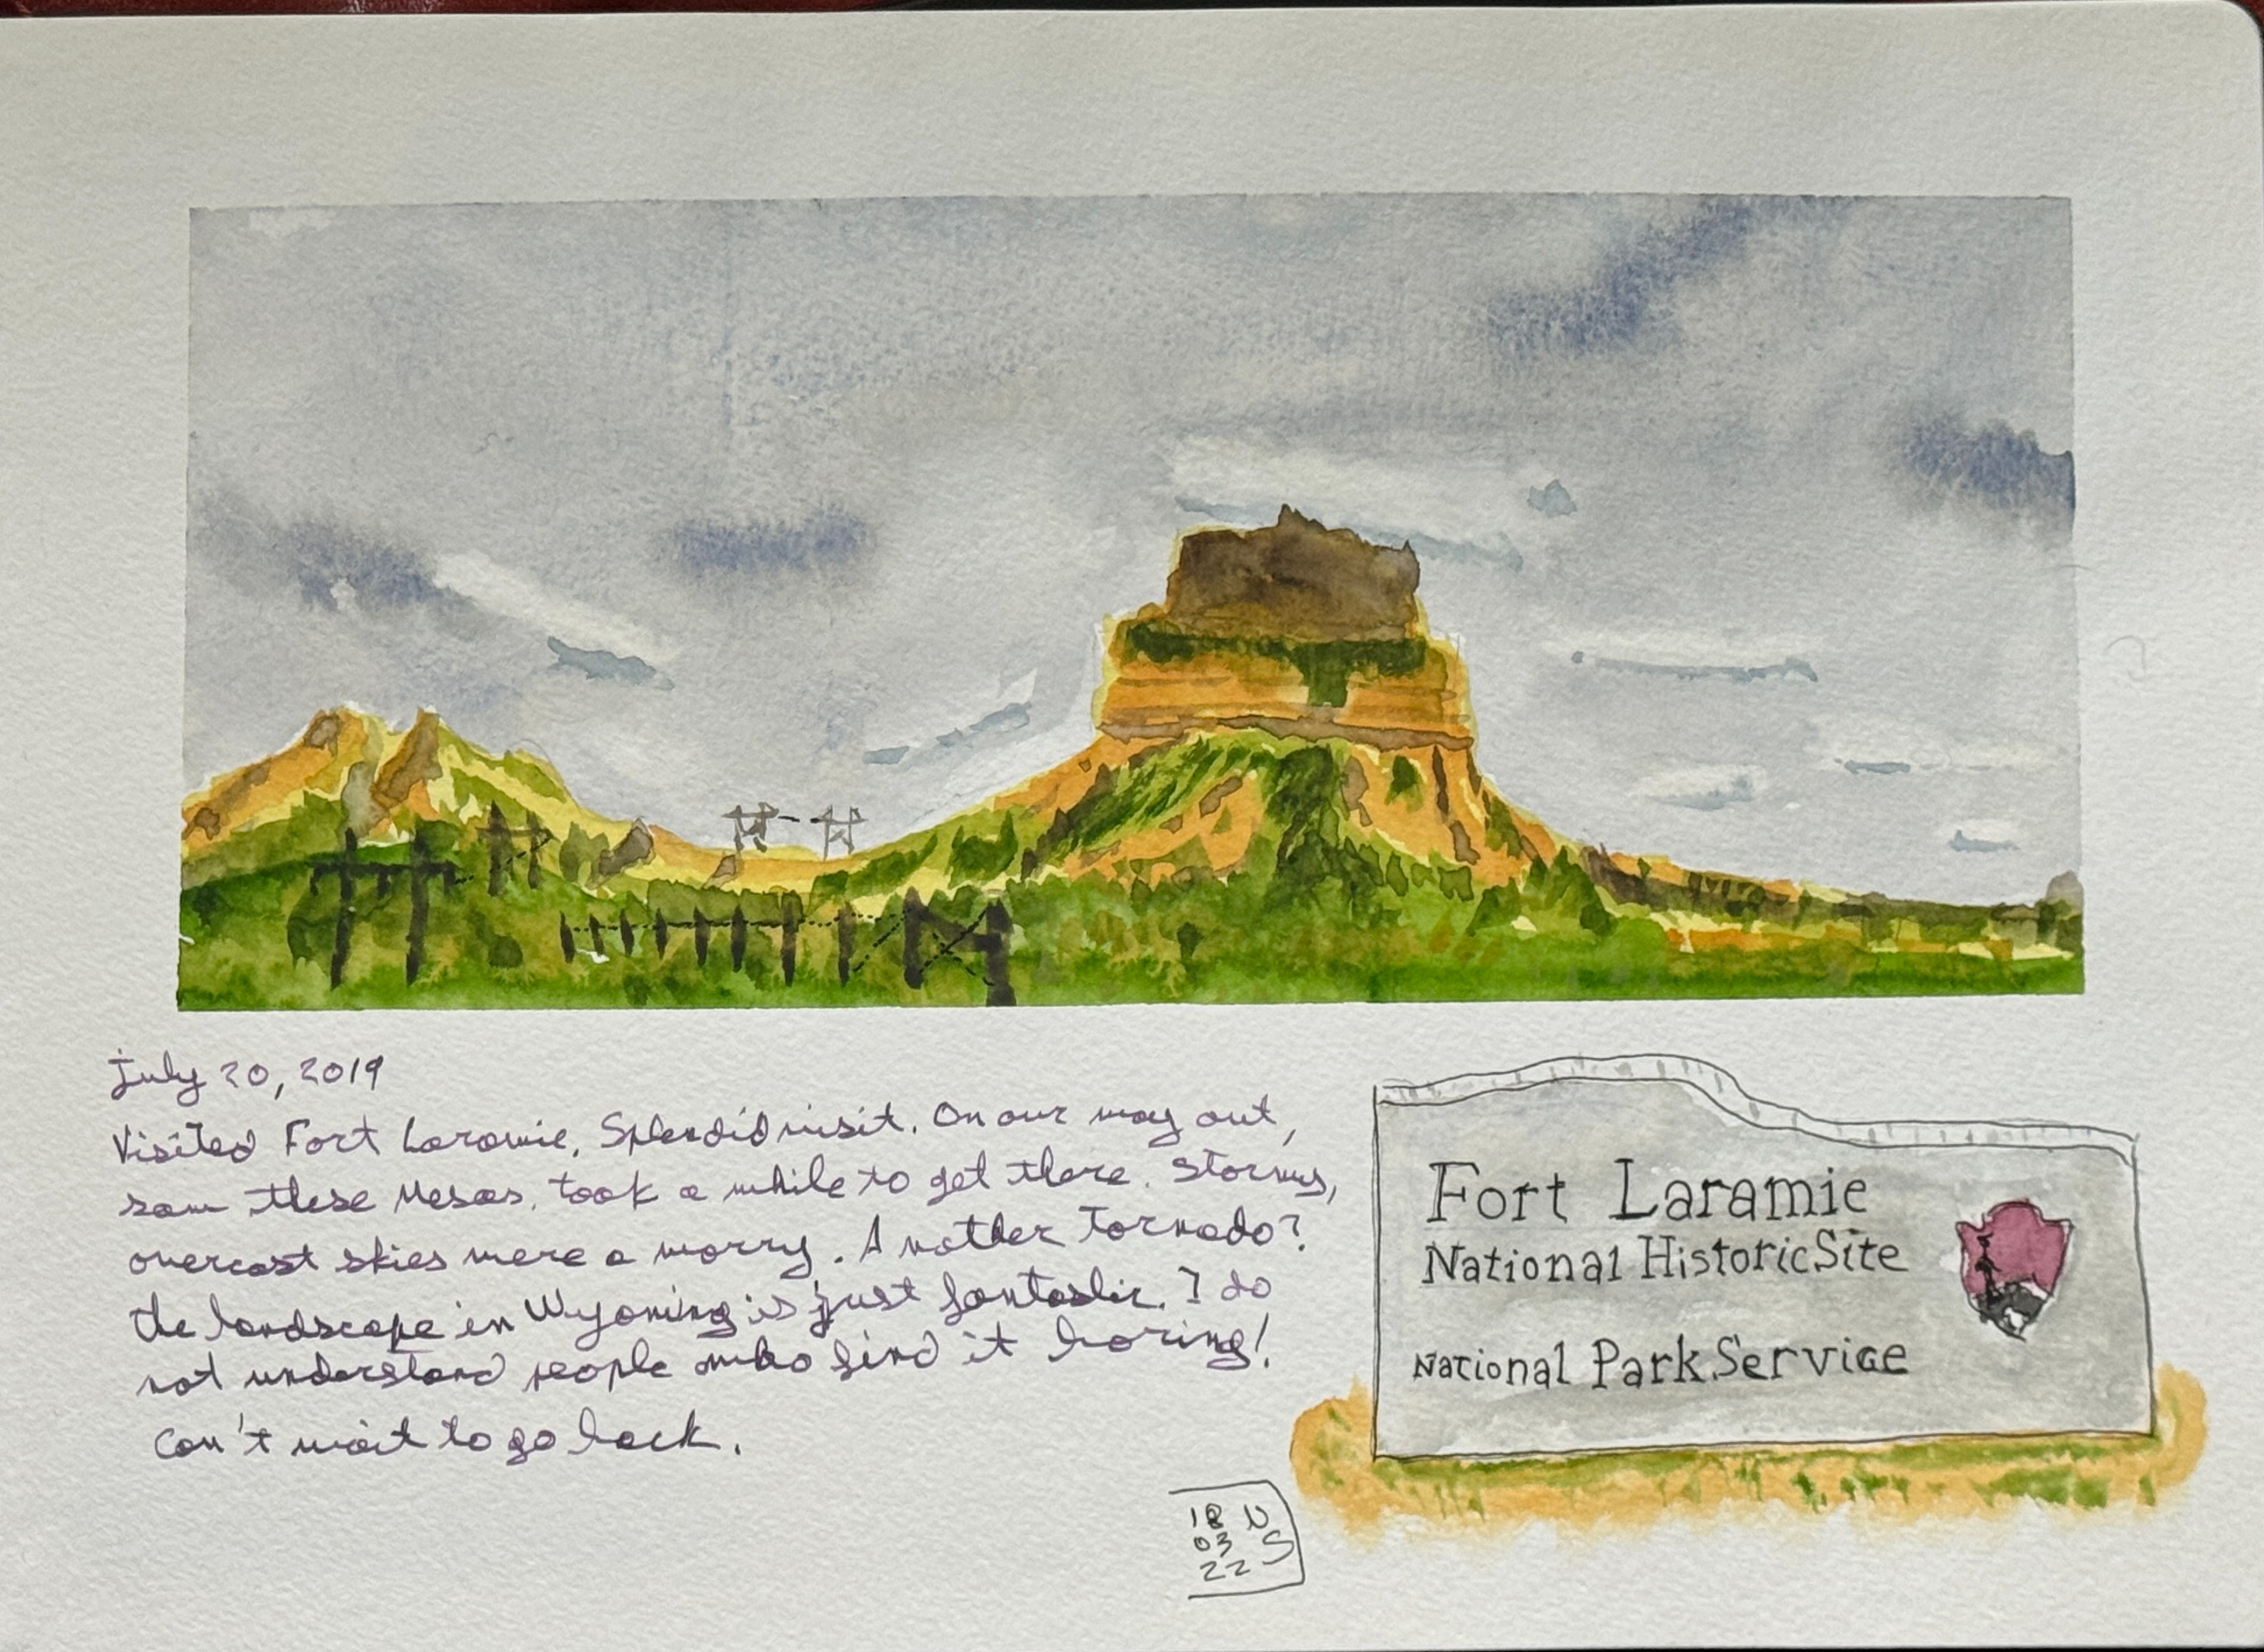 July 20, 2019
Visited Fort Laramie. Splendid visit. On our way out,
saw these Mesas. took a while to get there. Storms,
overcast skies were a worry. Another Tornado?
the landscape in Wyoming is just fantastic. I do
not understand people who find it boring!
Can't wait to go back.
Fort Laramie
National Historic Site
National Park Service
18 N
03 S
22